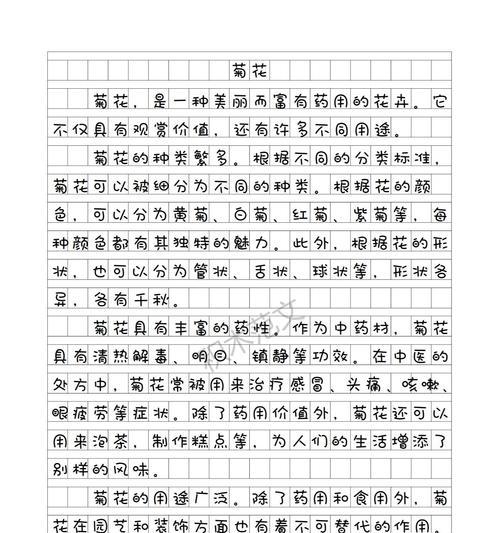 菊花
菊花，是一种美丽而富有药用的花卉。它
不仅具有观赏价值，还有许多不同用途。
菊花的种类繁多。根据不同的分类标准，
菊花可以被细分为不同的种类。根据花的颜
色，可以分为黄菊、白菊、红菊、紫菊等，每
种颜色都有其独特的魅力。此外，根据花的形
状，也可以分为管状、舌状、球状等，形状各
异，各有千秋。
菊花具有丰富的药性。作为中药材，菊花
具有清热解毒、明目、镇静等功效。在中医的
处方中，菊花常被用来治疗感冒、头痛、咳嗽、
眼疲劳等症状。除了药用价值外，菊花还可以
用来泡茶，制作糕点等，为人们的生活增添了
别样的风味。
菊花的用途广泛。除了药用和食用外，菊
花在园艺和装饰方面也有着不可替代的作用。
积木范文